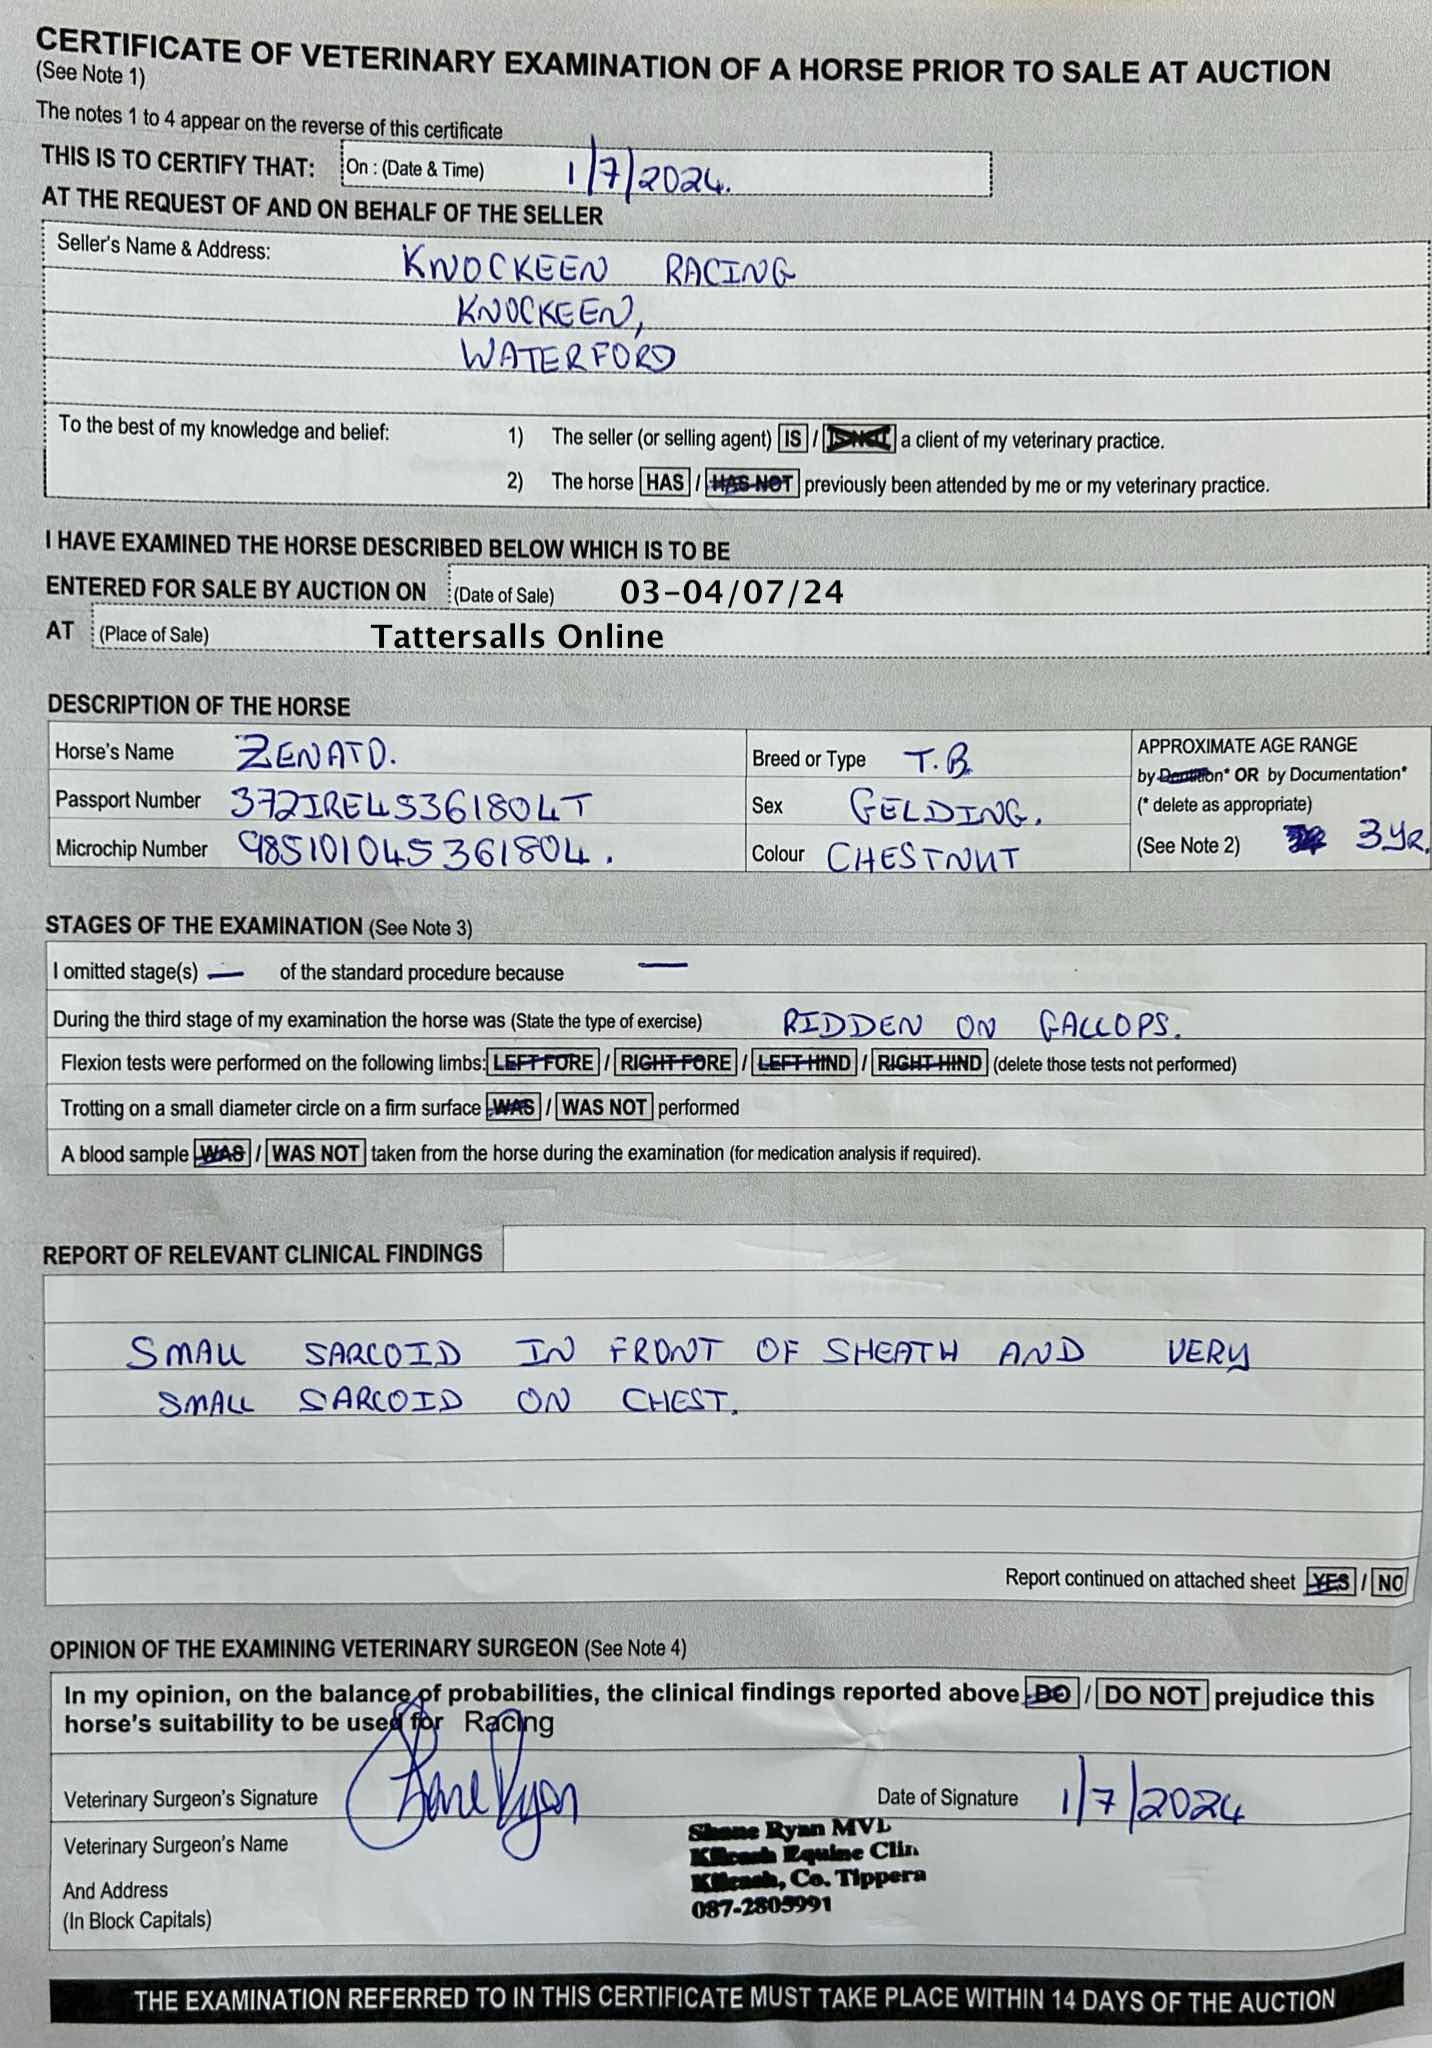 CERTIFICATE OF VETERINARY EXAMINATION OF A HORSE PRIOR TO SALE AT AUCTION
(See Note 1)
The notes 1 to 4 appear on the reverse of this certificate
THIS IS TO CERTIFY THAT: On : (Date & Time) 1/7/2024.
AT THE REQUEST OF AND ON BEHALF OF THE SELLER
Seller's Name & Address: KNOCKEEN RACING
KNOCKEEN,
WATERFORD
To the best of my knowledge and belief: 1) The seller (or selling agent) IS / IS NOT a client of my veterinary practice.
2) The horse HAS / HAS NOT previously been attended by me or my veterinary practice.
I HAVE EXAMINED THE HORSE DESCRIBED BELOW WHICH IS TO BE
ENTERED FOR SALE BY AUCTION ON (Date of Sale) 03-04/07/24
AT (Place of Sale) Tattersalls Online
DESCRIPTION OF THE HORSE
Horse's Name ZENATO. Breed or Type T.B. APPROXIMATE AGE RANGE
by Dentition* OR by Documentation*
Passport Number 372IRE45361804T Sex GELDING. (* delete as appropriate)
Microchip Number 985101045361804. Colour CHESTNUT (See Note 2) 3 YR.
STAGES OF THE EXAMINATION (See Note 3)
I omitted stage(s) — of the standard procedure because —
During the third stage of my examination the horse was (State the type of exercise) RIDDEN ON GALLOPS.
Flexion tests were performed on the following limbs: LEFT FORE / RIGHT FORE / LEFT HIND / RIGHT HIND (delete those tests not performed)
Trotting on a small diameter circle on a firm surface WAS / WAS NOT performed
A blood sample WAS / WAS NOT taken from the horse during the examination (for medication analysis if required).
REPORT OF RELEVANT CLINICAL FINDINGS
SMALL SARCOID IN FRONT OF SHEATH AND VERY
SMALL SARCOID ON CHEST.
Report continued on attached sheet YES / NO
OPINION OF THE EXAMINING VETERINARY SURGEON (See Note 4)
In my opinion, on the balance of probabilities, the clinical findings reported above DO / DO NOT prejudice this
horse's suitability to be used for Racing
Veterinary Surgeon's Signature Shane Ryan Date of Signature 1/7/2024
Veterinary Surgeon's Name Shane Ryan MVB
Kilcash Equine Clin
And Address Kilcash, Co. Tippera
(In Block Capitals) 087-2805991
THE EXAMINATION REFERRED TO IN THIS CERTIFICATE MUST TAKE PLACE WITHIN 14 DAYS OF THE AUCTION